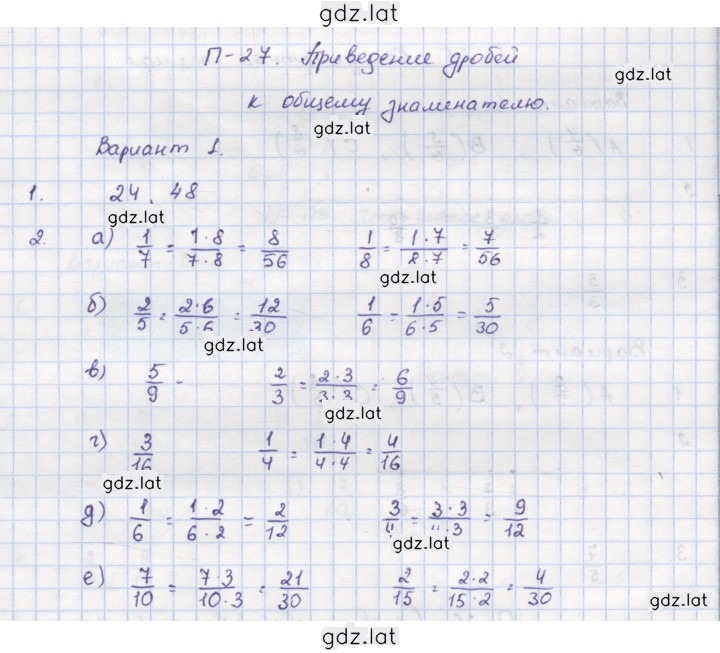 gdz.lat
П-27. Приведение дробей
gdz.lat
к общему знаменателю.
gdz.lat
Вариант 1.
1. 24, 48
gdz.lat
2. а) 1/7 = 1·8/7·8 = 8/56 1/8 = 1·7/8·7 = 7/56
gdz.lat
б) 2/5 = 2·6/5·6 = 12/30 1/6 = 1·5/6·5 = 5/30
gdz.lat
в) 5/9 - 2/3 = 2·3/3·3 = 6/9
gdz.lat
г) 3/16 1/4 = 1·4/4·4 = 4/16
gdz.lat
д) 1/6 = 1·2/6·2 = 2/12 3/4 = 3·3/4·3 = 9/12
gdz.lat
е) 7/10 = 7·3/10·3 = 21/30 2/15 = 2·2/15·2 = 4/30
gdz.lat
gdz.lat